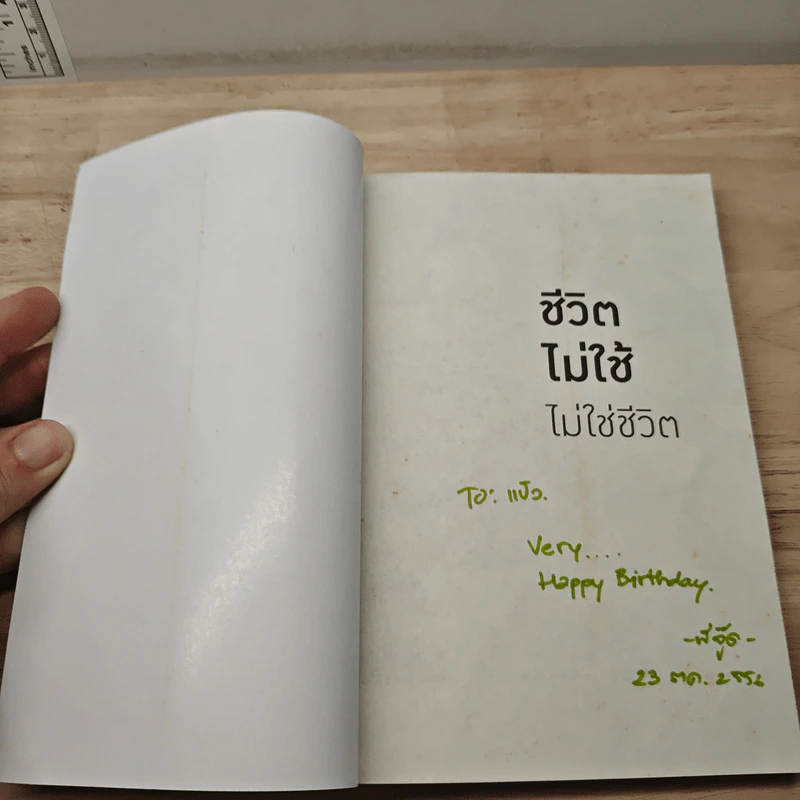 ชีวิต
ไม่ใช้
ไม่ใช่ชีวิต
To: แป๋ว.
Very....
Happy Birthday.
23 ตค. 2556